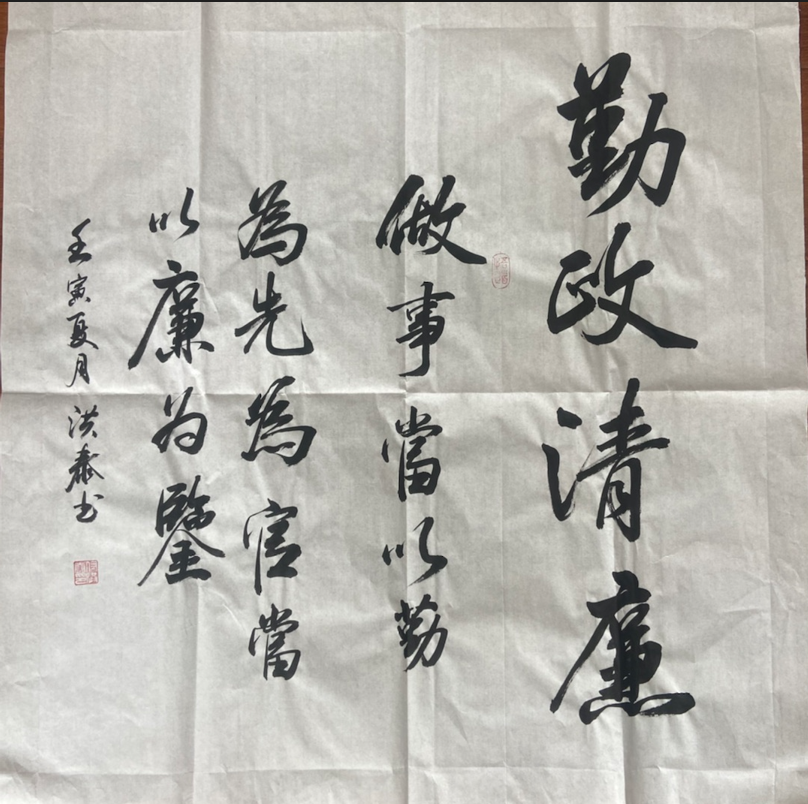 勤政清廉
做事當以勤
為先為官當
以廉为鑒
壬寅夏月 洪泰书